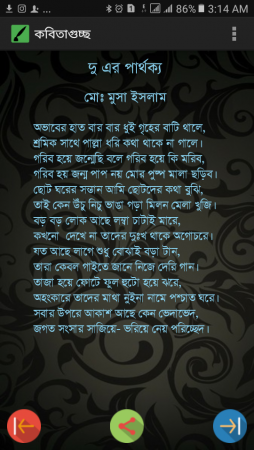 3:14 AM
কবিতাগুচ্ছ
দু এর পার্থক্য
মোঃ মুসা ইসলাম
অভাবের হাত বার বার ধুই গৃহের বাটি থালে,
শ্রমিক সাথে পাল্লা ধরি কথা থাকে না গালে।
গরিব হয়ে জন্মেছি বলে গরিব হয়ে কি মরিব,
গরিব হয় জন্ম পাপ নয় মোর পুষ্প মালা ছড়িব।
ছোট ঘরের সন্তান আমি ছোটদের কথা বুঝি,
তাই কেন উঁচু নিচু ভাঙা গড়া মিলন মেলা খুজি।
বড় বড় লোক আছে লম্বা চাটাই মারে,
কখনো দেখে না তাদের দুঃখ থাকে অগোচরে।
যত আছে লাগে শুধু বোঝাই বড়া টান,
তারা কেবল গাইতে জানে নিজে দেরি গান।
তাজা হয়ে ফোটে ফুল হুটো হয়ে ঝরে,
অহংকারে তাদের মাথা নুইনা নামে পশ্চাত ঘরে।
সবার উপরে আকাশ আছে কেন ভেদাভেদ,
জগত সংসার সাজিয়ে- ভরিয়ে নেয় পরিচ্ছেদ।